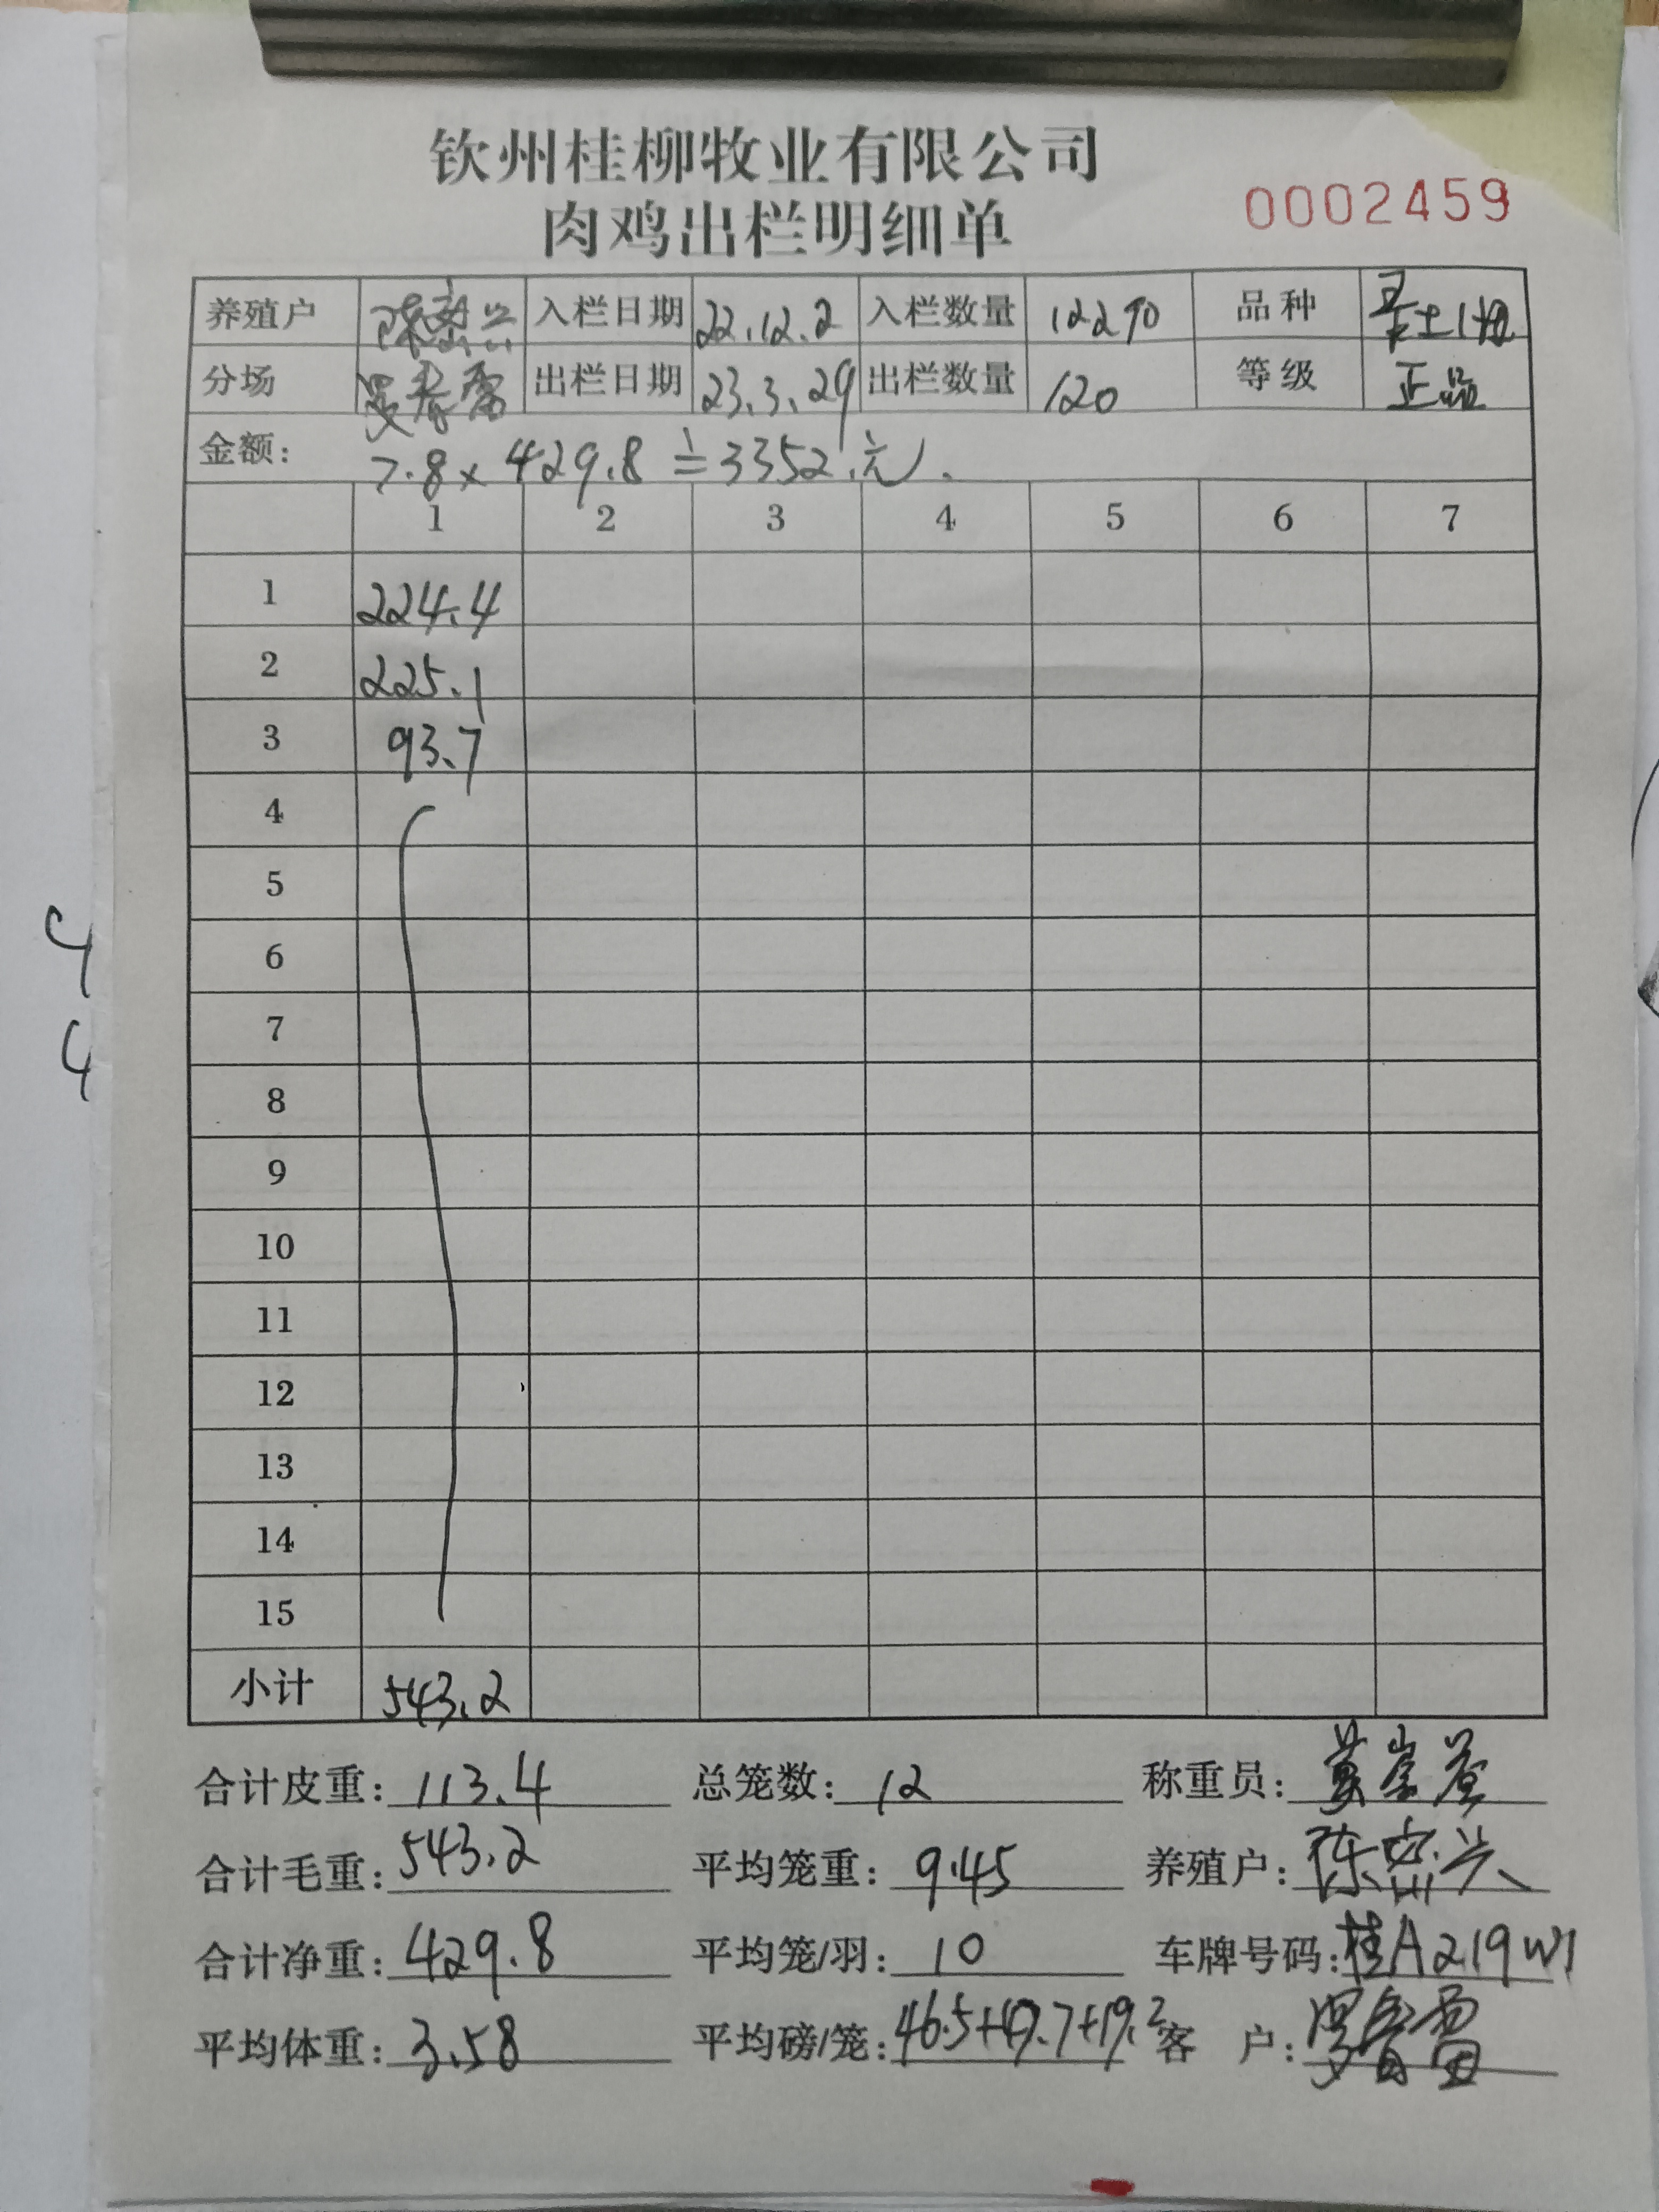 钦州桂柳牧业有限公司
肉鸡出栏明细单
0002459
养殖户 入栏日期 22.12.2 入栏数量 12290 品种
分场 出栏日期 23.3.29 出栏数量 120 等级 正品
金额: 7.8×429.8≐3352元.
1 2 3 4 5 6 7
1 224.4
2 225.1
3 93.7
4
5
6
7
8
9
10
11
12
13
14
15
小计 543.2
合计皮重: 113.4 总笼数: 12 称重员: 黄
合计毛重: 543.2 平均笼重: 9.45 养殖户: 陈崇兴
合计净重: 429.8 平均笼/羽: 10 车牌号码: 桂A219W1
平均体重: 3.58 平均磅/笼: 46.5+47.7+19.2 客户:
4
4